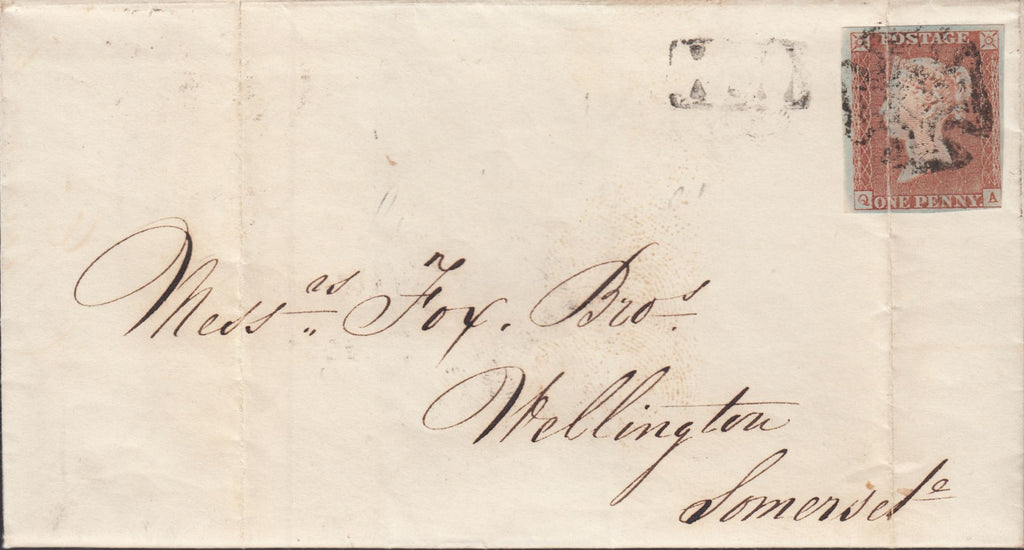 POSTAGE
Q ONE PENNY. A
Mess.rs Fox. Bros.
Wellington
Somerset